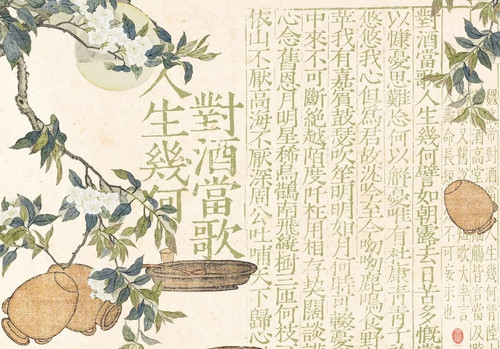 對酒當歌人生幾何譬如朝露去日苦多慨當
以慷憂思難忘何以解憂唯有杜康青青子
悠悠我心但爲君故沈吟至今呦呦鹿鳴食野
苹我有嘉賓鼓瑟吹笙明明如月何時可輟憂
中來不可斷絕越陌度阡枉用相存契闊談
心念舊恩月明星稀烏鵲南飛繞樹三匝何枝
依山不厭高海不厭深周公吐哺天下歸心
對酒當歌
人生幾何